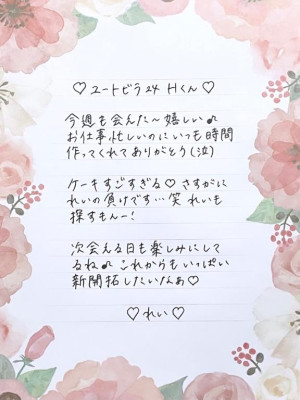 ♡ ユートピラ24 Hくん ♡
今週も会えた〜嬉しい♪
お仕事忙しいのにいつも時間
作ってくれてありがとう(泣)
ケーキすごすぎる♡ さすがに
れいの負けです…笑 れいも
探すもんー!
次会える日も楽しみにして
るね♪ これからもいっぱい
新開拓したいなぁ♡
♡ れい ♡